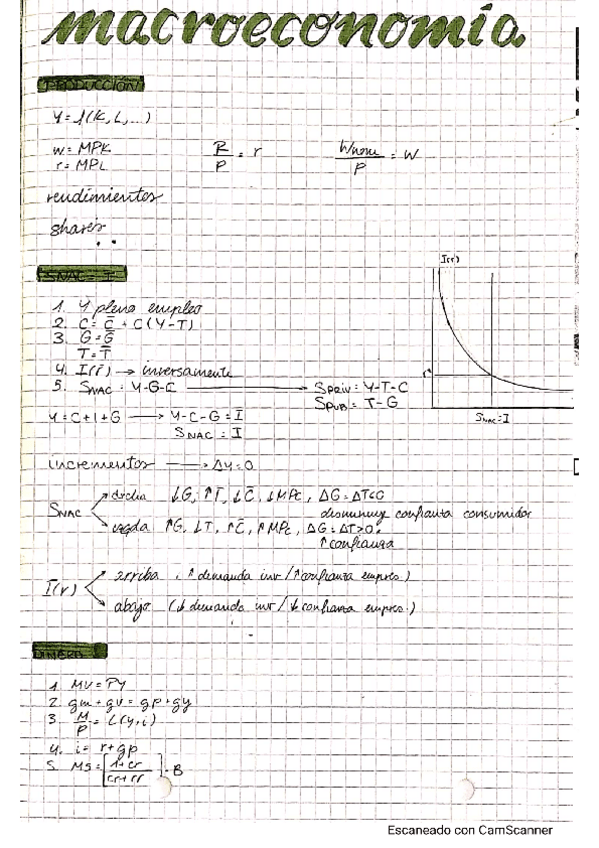 macroeconomía
PRODUCCIÓN
Y = f(K, L, ...)
w = MPK
r = MPL
R/P = r
Wnom/P = w
rendimientos
shares
SNAC = I
1. Y pleno empleo
2. C = C̄ + C(Y-T)
3. G = Ḡ
T = T̄
4. I(r) → inversamente
5. SNAC = Y-G-C → SPRIV = Y-T-C
SPUB = T-G
Y = C+I+G → Y-C-G = I
SNAC = I
I(r)
r*
SNAC = I
incrementos → ΔY=0
SNAC
dcha ↓G, ↑T, ↓C̄, ↓MPC, ΔG=ΔT<0
disminuye confianza consumidor
izqda ↑G, ↓T, ↑C̄, ↑MPC, ΔG=ΔT>0
↑confianza
I(r)
arriba (↑demanda inv/↑confianza empres.)
abajo (↓demanda inv/↓confianza empres.)
DINERO
1. MV = PY
2. gm + gv = gp + gy
3. M/P = L(Y,i)
4. i = r + gp
5. MS = [1+cr / cr+rr] · B
Escaneado con CamScanner